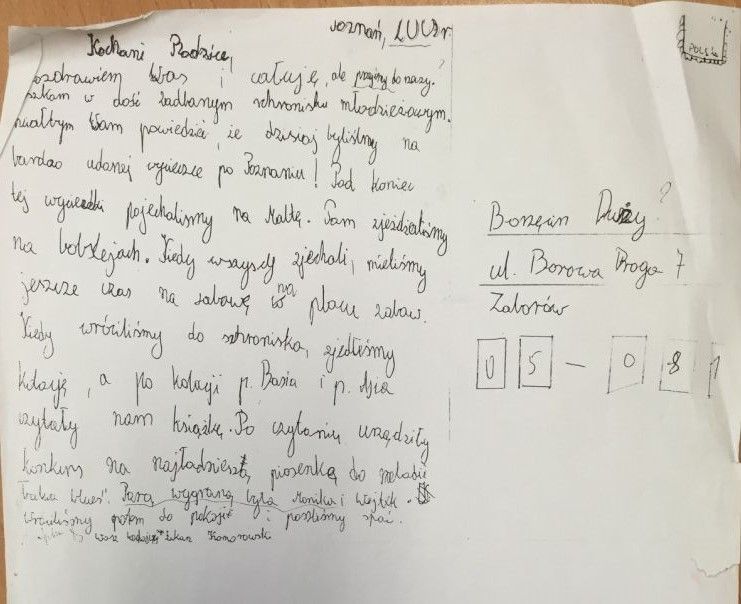 Poznań, LUCZr.
Kochani Rodzice,
pozdrawiem Was i całuję, ale przejdę do rzeczy.
w dość zadbanym schronisku młodzieżowym.
Wam powiedzieć, że dzisiaj byliśmy na
bardzo udanej wycieczce po Poznaniu! Pod koniec
tej wycieczki pojechaliśmy na Maltę. Tam zjeżdżaliśmy
na bobslejach. Kiedy wszyscy zjechali, mieliśmy
jeszcze czas na zabawę na placu zabaw.
Kiedy wróciliśmy do schroniska, zjedliśmy
kolację, a po kolacji p. Basia i p. Aga
czytały nam książkę. Po czytaniu urządziły
konkurs na najładniejszą piosenkę do melodii
blues". Parą wygraną była Monika i Wojtek.
Wróciliśmy potem do pokoju i poszliśmy spać.
wasz Komorowski
POLSKA
Borzęcin Duży ?
ul. Borowa Droga 7
Zaborów
05 - 081